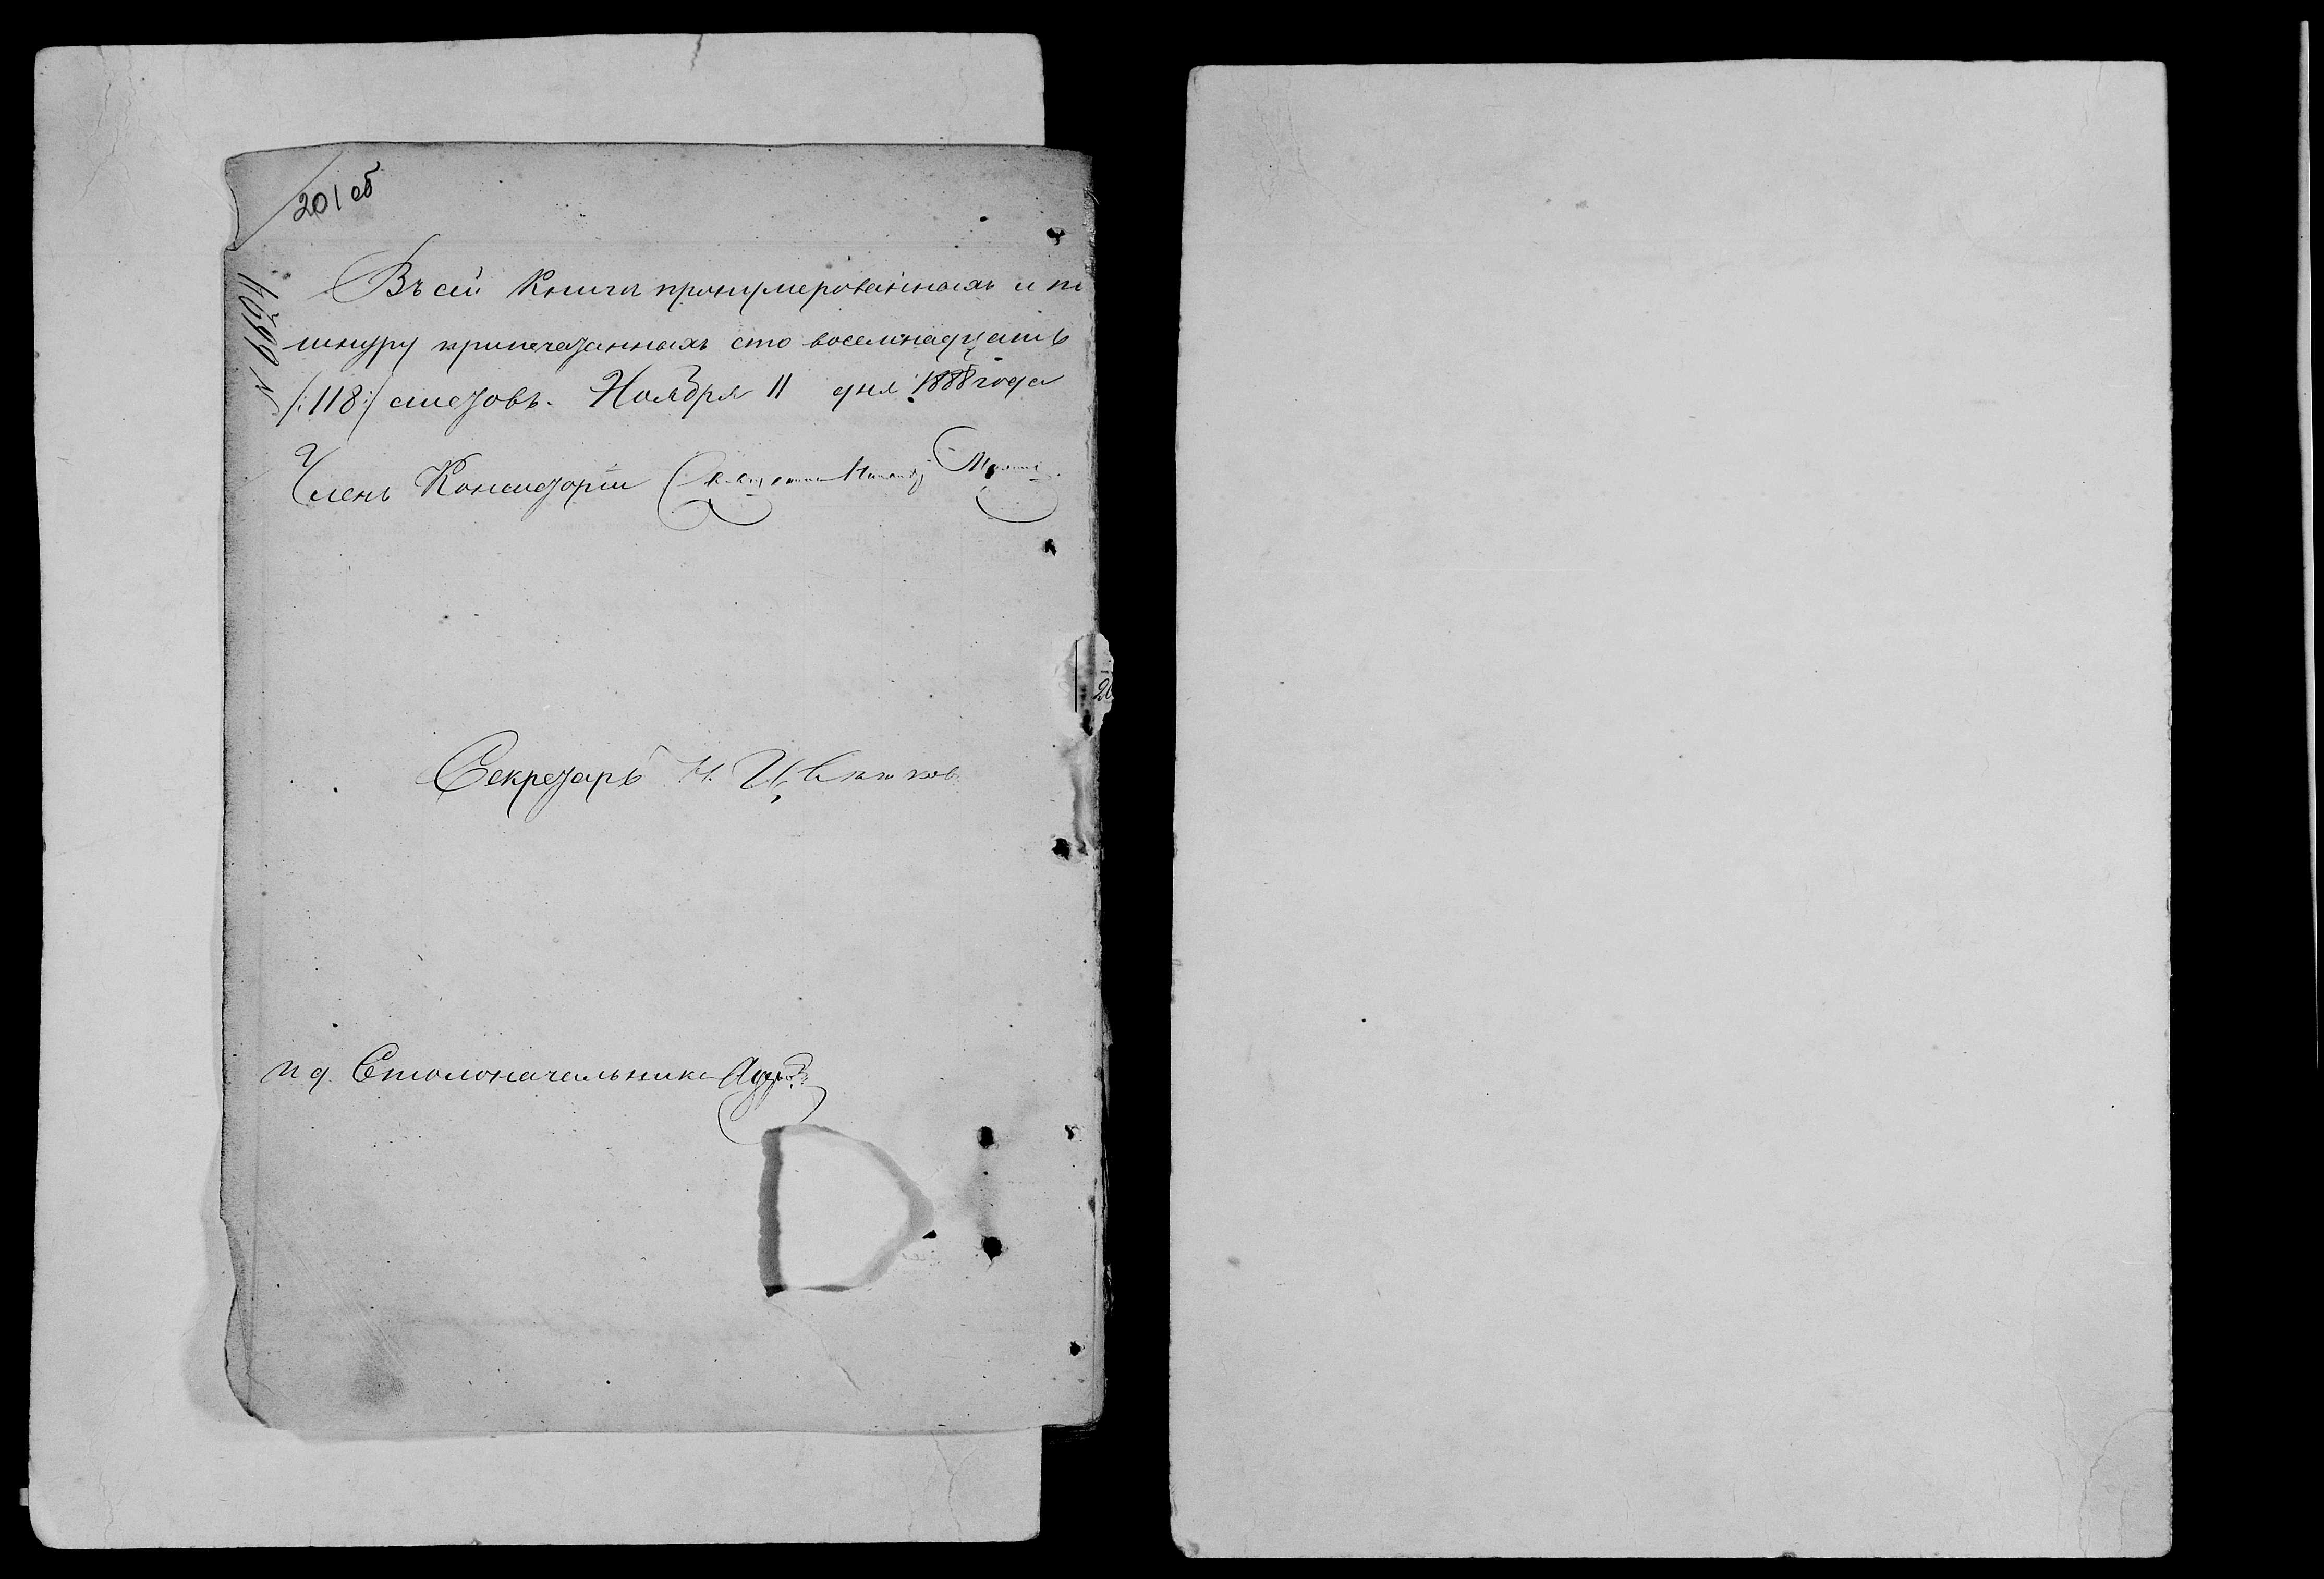 201 об
Въ сей Книги пронумерованныхъ и по
шнуру припечатанныхъ сто восемнадцать
/:118:/ листовъ. Ноября 11 дня 1888 года
Членъ Консисторіи Священникъ
Секретарь Н. Цвѣтков
И д. Столоначальника